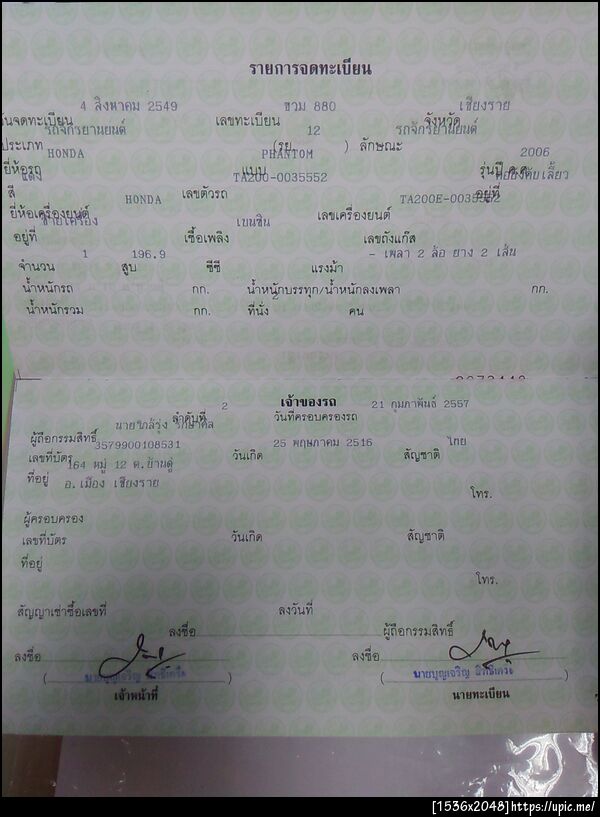 รายการจดทะเบียน
4 สิงหาคม 2549 ขวม 880 เชียงราย
วันจดทะเบียน เลขทะเบียน จังหวัด
รถจักรยานยนต์ 12 รถจักรยานยนต์
ประเภท (รย. ) ลักษณะ
HONDA PHANTOM 2006
ยี่ห้อรถ แบบ รุ่นปี ค.ศ.
แดง TA200-0035552
สี เลขตัวรถ อยู่ที่
HONDA TA200E-0035552
ยี่ห้อเครื่องยนต์ เลขเครื่องยนต์
ซ้ายเครื่อง เบนซิน
อยู่ที่ เชื้อเพลิง เลขถังแก๊ส
1 196.9 - เพลา 2 ล้อ ยาง 2 เส้น
จำนวน สูบ ซีซี แรงม้า
น้ำหนักรถ กก. น้ำหนักบรรทุก/น้ำหนักลงเพลา กก.
2
น้ำหนักรวม กก. ที่นั่ง คน
เจ้าของรถ
2 21 กุมภาพันธ์ 2557
ลำดับที่ วันที่ครอบครองรถ
ผู้ถือกรรมสิทธิ์
3579900108531 25 พฤษภาคม 2516 ไทย
เลขที่บัตร วันเกิด สัญชาติ
164 หมู่ 12 ต.บ้านดู่
ที่อยู่ อ.เมือง เชียงราย
โทร.
ผู้ครอบครอง
เลขที่บัตร วันเกิด สัญชาติ
ที่อยู่
โทร.
สัญญาเช่าซื้อเลขที่ ลงวันที่
ลงชื่อ ผู้ถือกรรมสิทธิ์
ลงชื่อ ลงชื่อ
นายบุญเจริญ นายบุญเจริญ
เจ้าหน้าที่ นายทะเบียน
[1536x2048]https://upic.me/